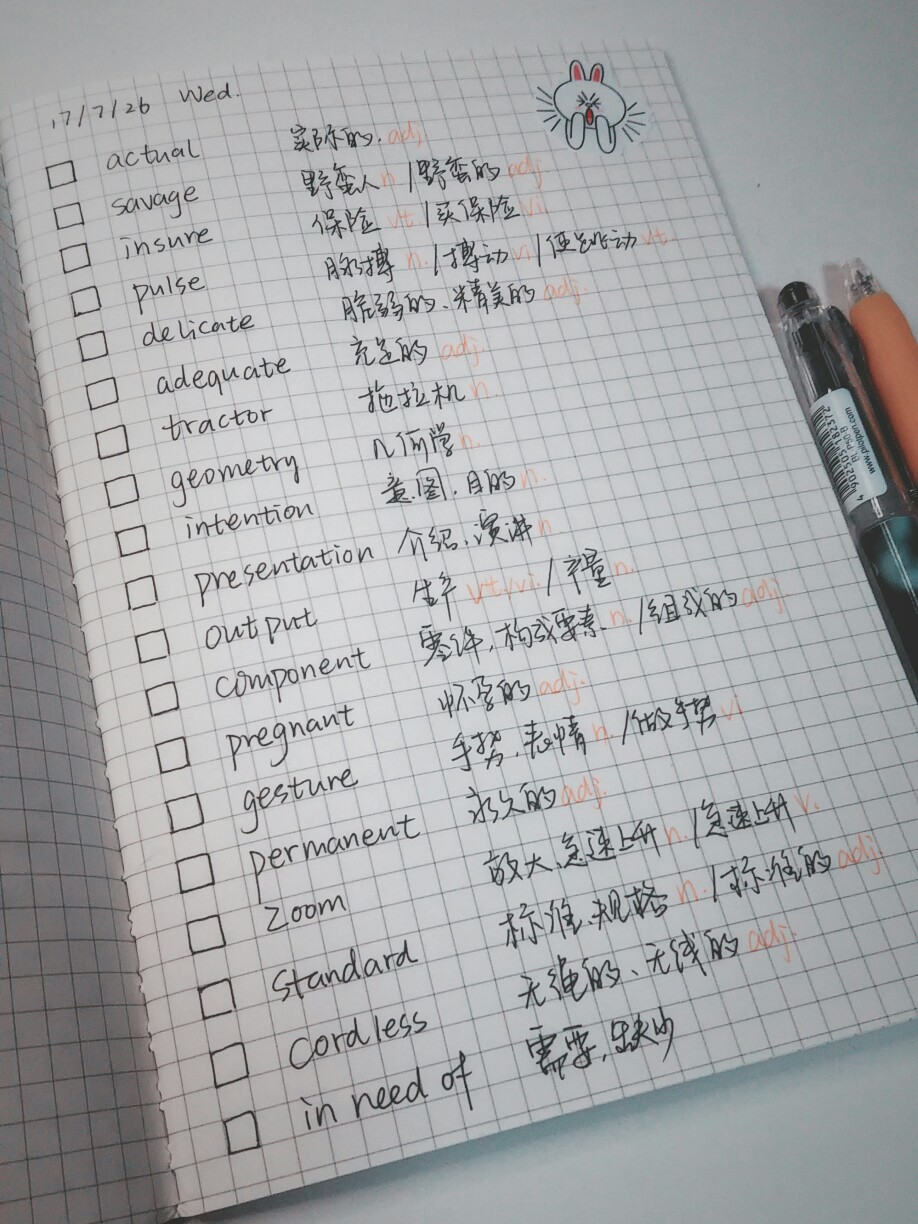 17/7/26 Wed.
actual 实际的. adj
savage 野蛮人 n /野蛮的 adj.
insure 保险 vt /买保险 vi
pulse 脉搏 n. /搏动 vi /使跳动 vt
delicate 脆弱的、精美的 adj.
adequate 充足的 adj.
tractor 拖拉机 n.
geometry 几何学 n.
intention 意图. 目的 n.
presentation 介绍、演讲 n
output 生产 vt/vi. /产量 n.
component 零件, 构成要素 n. /组成的 adj.
pregnant 怀孕的 adj.
gesture 手势. 表情 n. /做手势 vi
permanent 永久的 adj.
zoom 放大、急速上升 n. /急速上升 v.
standard 标准. 规格 n. /标准的 adj
cordless 无绳的、无线的 adj.
in need of 需要, 缺少
www.pilotpen.com
BL-P50-B
4 902505 182372